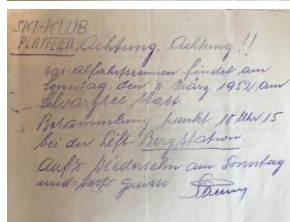 SKI-KLUB
PLAFFEIEN Achtung. Achtung!!
Das Abfahrtsrennen findet am
Sonntag, den 2. März 1952, am
Schwarzsee statt.
Besammlung punkt 10 Uhr 15
bei der Lift-Bergstation.
Auf's Wiedersehn am Sonntag
und beste Grüsse